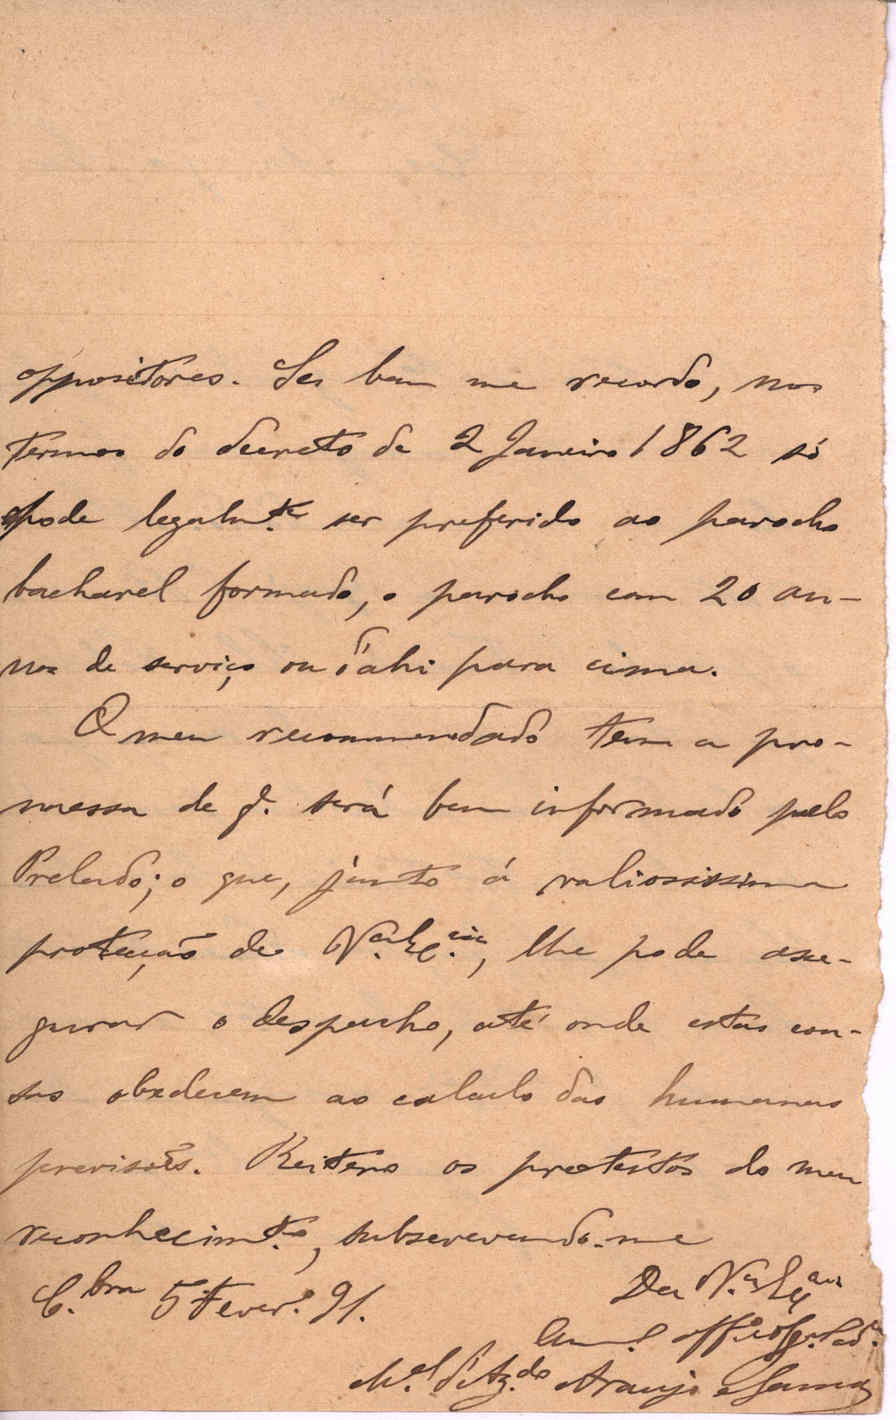 oppositores. Se bem me recordo, nos
termos do decreto de 2 Janeiro 1862 só
pode legalm.te ser preferido ao parocho
bacharel formado, o parocho com 20 an-
nos de serviço ou d'ahi para cima.
O meu recommendado tem a pro-
messa de q. será bem informado pelo
Prelado; o que, junto á valiosissima
protecção de V.a Ex.cia, lhe pode asse-
gurar o despacho, até onde estas cou-
sas obedecem ao calculo das humanas
previsões. Reitero os protestos do meu
reconhecim.to, subscrevendo-me
C.bra 5 Fever.o 91.
De V.a Ex.cia
Am.o
M.el d'Az.do Araujo e Gama